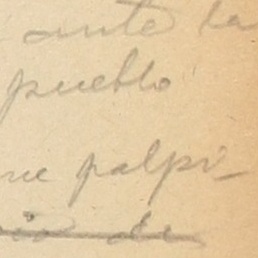 ante la
pueblo
ue palpi-
de